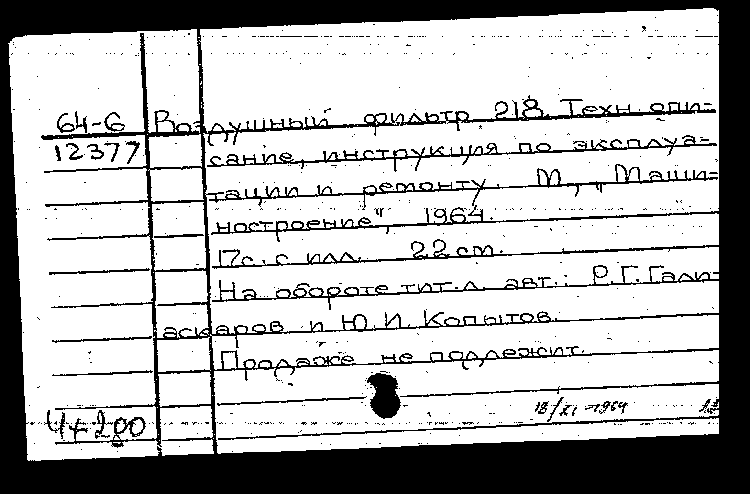 64-6 Воздушный фильтр 218. Техн. опи-
12377 сание, инструкция по эксплуа-
тации и ремонту. М., „Маши-
ностроение", 1964.
17с. с илл. 22 см.
На обороте тит. л. авт.: Р.Г. Гали-
аскаров и Ю.И. Копытов.
Продаже не подлежит.
18/XI-1964